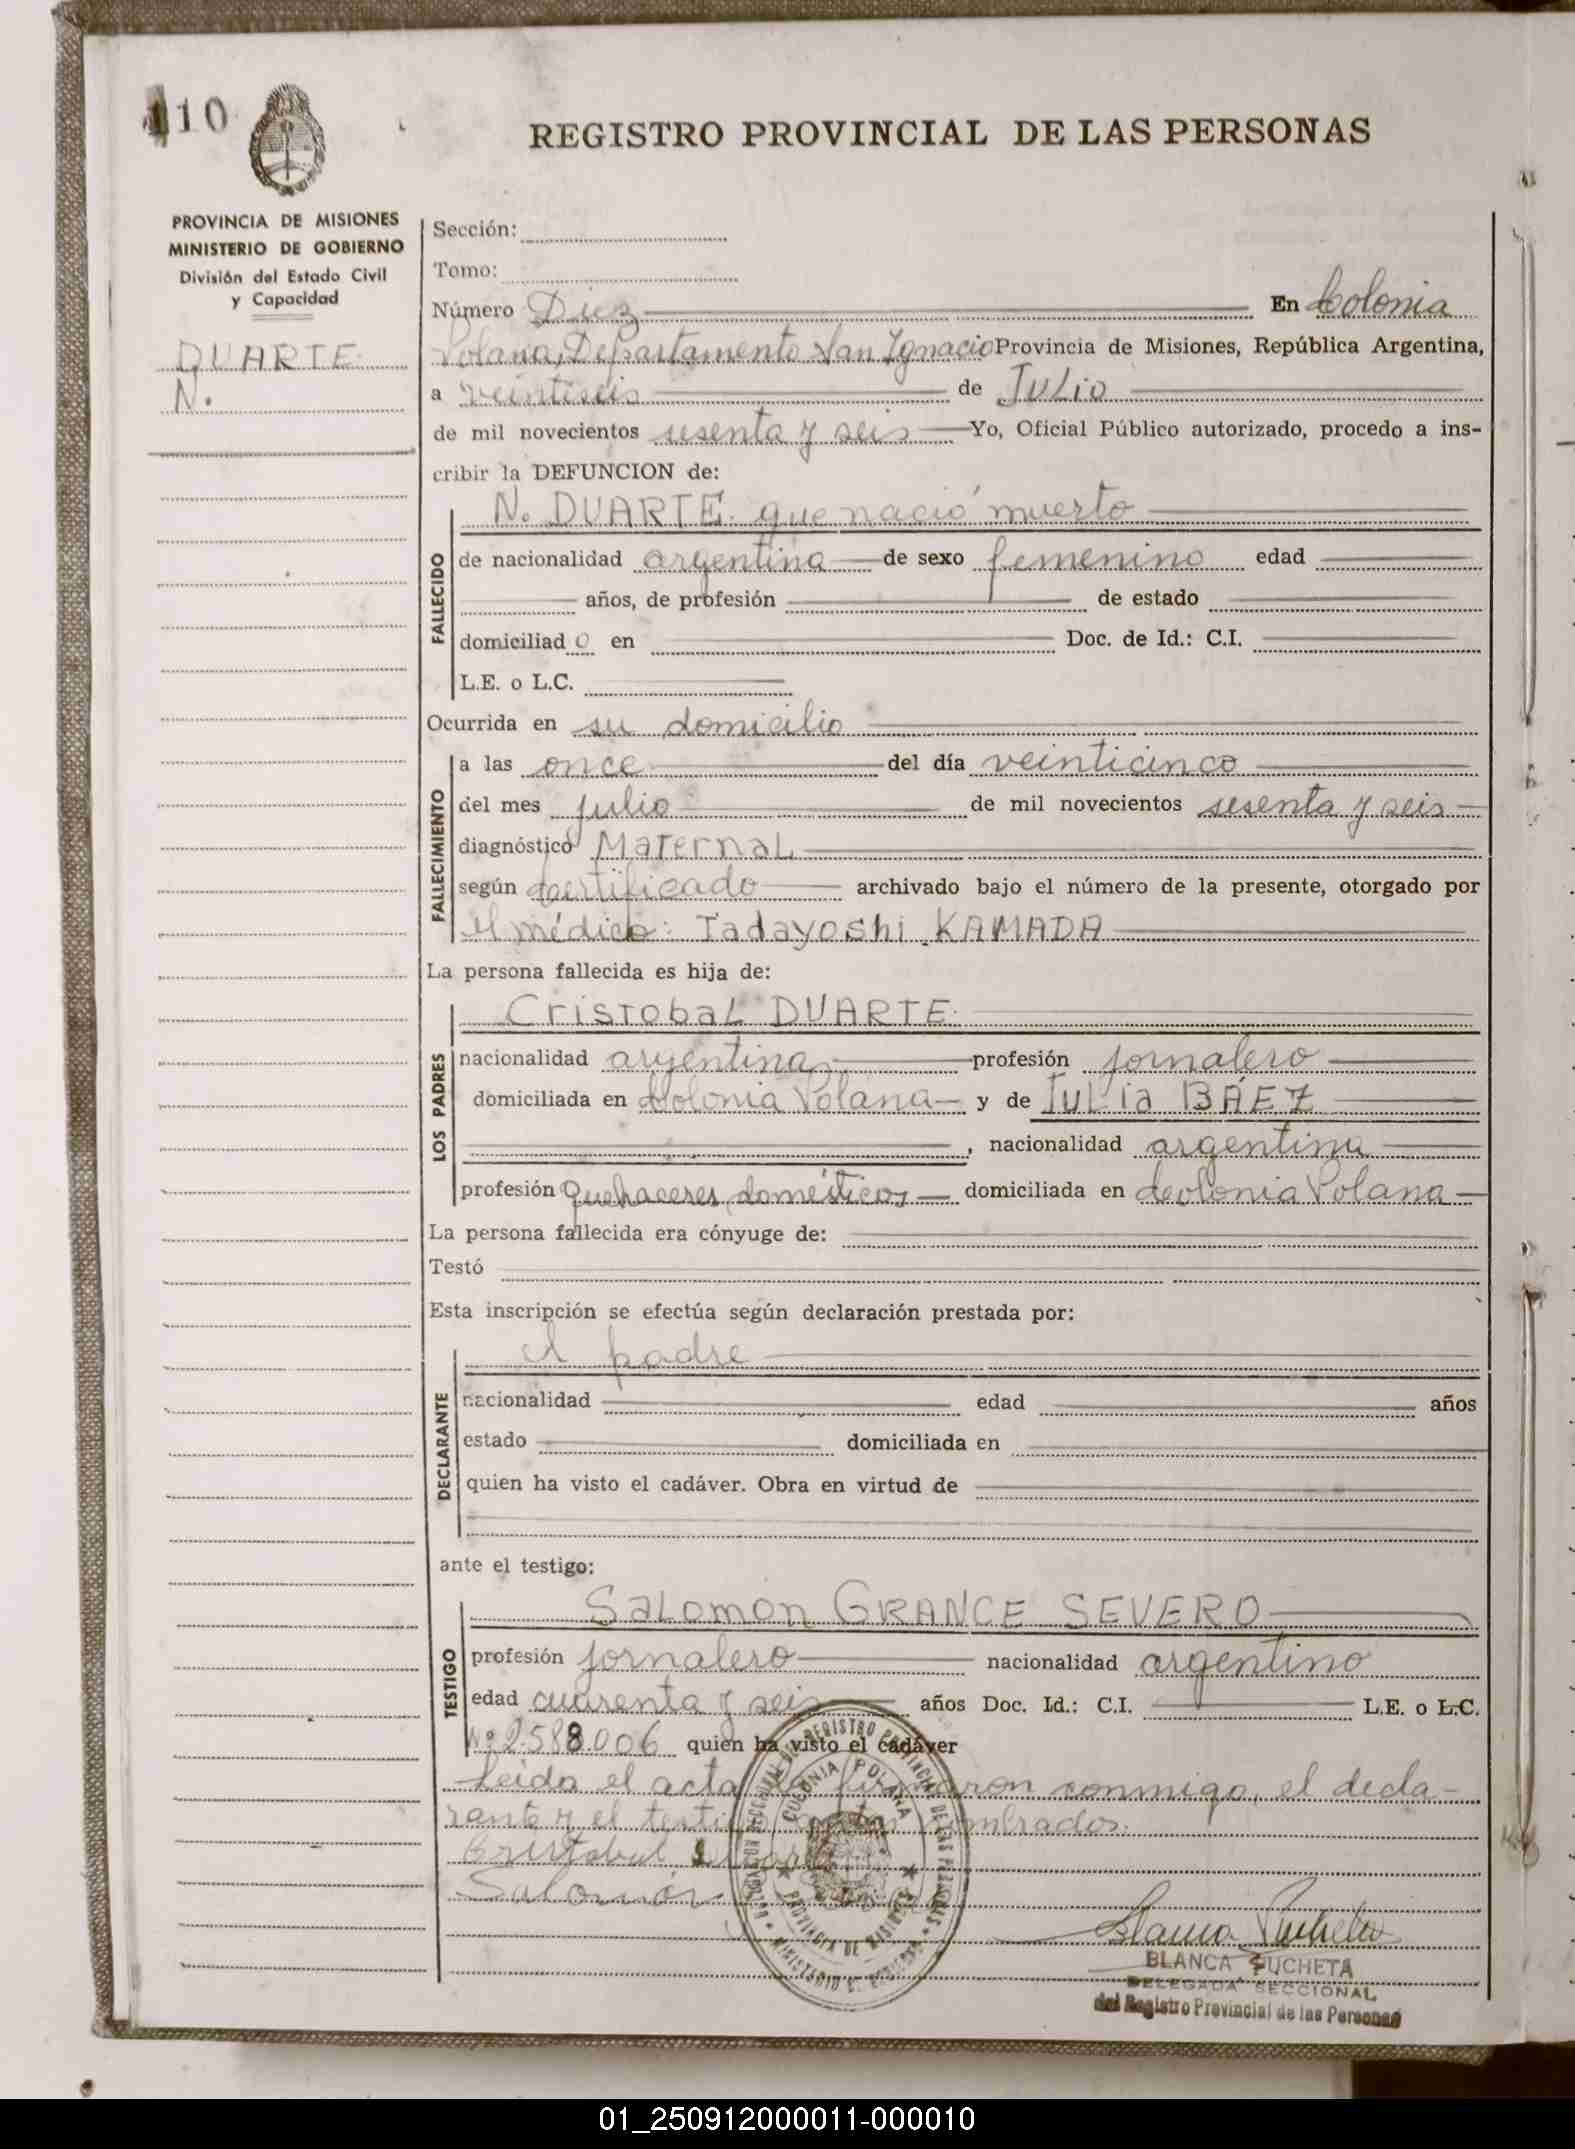 110
REGISTRO PROVINCIAL DE LAS PERSONAS
PROVINCIA DE MISIONES
MINISTERIO DE GOBIERNO
División del Estado Civil
y Capacidad
DUARTE
N.
Sección:
Tomo:
Número Diez En Colonia
Polana, Departamento San Ignacio Provincia de Misiones, República Argentina,
a veintiseis de Julio
de mil novecientos sesenta y seis Yo, Oficial Público autorizado, procedo a ins-
cribir la DEFUNCION de:
N. DUARTE que nació muerto
FALLECIDO
de nacionalidad argentina de sexo femenino edad
años, de profesión de estado
domiciliado en Doc. de Id.: C.I.
L.E. o L.C.
Ocurrida en su domicilio
FALLECIMIENTO
a las once del día veinticinco
del mes julio de mil novecientos sesenta y seis
diagnóstico Maternal
según certificado archivado bajo el número de la presente, otorgado por
el médico: Tadayoshi KAMADA
La persona fallecida es hija de:
LOS PADRES
Cristobal DUARTE
nacionalidad argentina profesión jornalero
domiciliada en Colonia Polana y de Julia BÁEZ
, nacionalidad argentina
profesión Quehaceres domésticos domiciliada en Colonia Polana
La persona fallecida era cónyuge de:
Testó
Esta inscripción se efectúa según declaración prestada por:
DECLARANTE
el padre
nacionalidad edad años
estado domiciliada en
quien ha visto el cadáver. Obra en virtud de
ante el testigo:
TESTIGO
Salomon GRANCE SEVERO
profesión jornalero nacionalidad argentino
edad cuarenta y seis años Doc. Id.: C.I. L.E. o L.C.
Nº 2.588.006 quien ha visto el cadáver
Leida el acta la firmaron conmigo, el decla-
rante y el testigo nombrados.
Cristobal
Salomón
COLONIA POLANA
PROVINCIA DE MISIONES
Blanca Pucheta
BLANCA PUCHETA
DELEGADA SECCIONAL
del Registro Provincial de las Personas
01_250912000011-000010